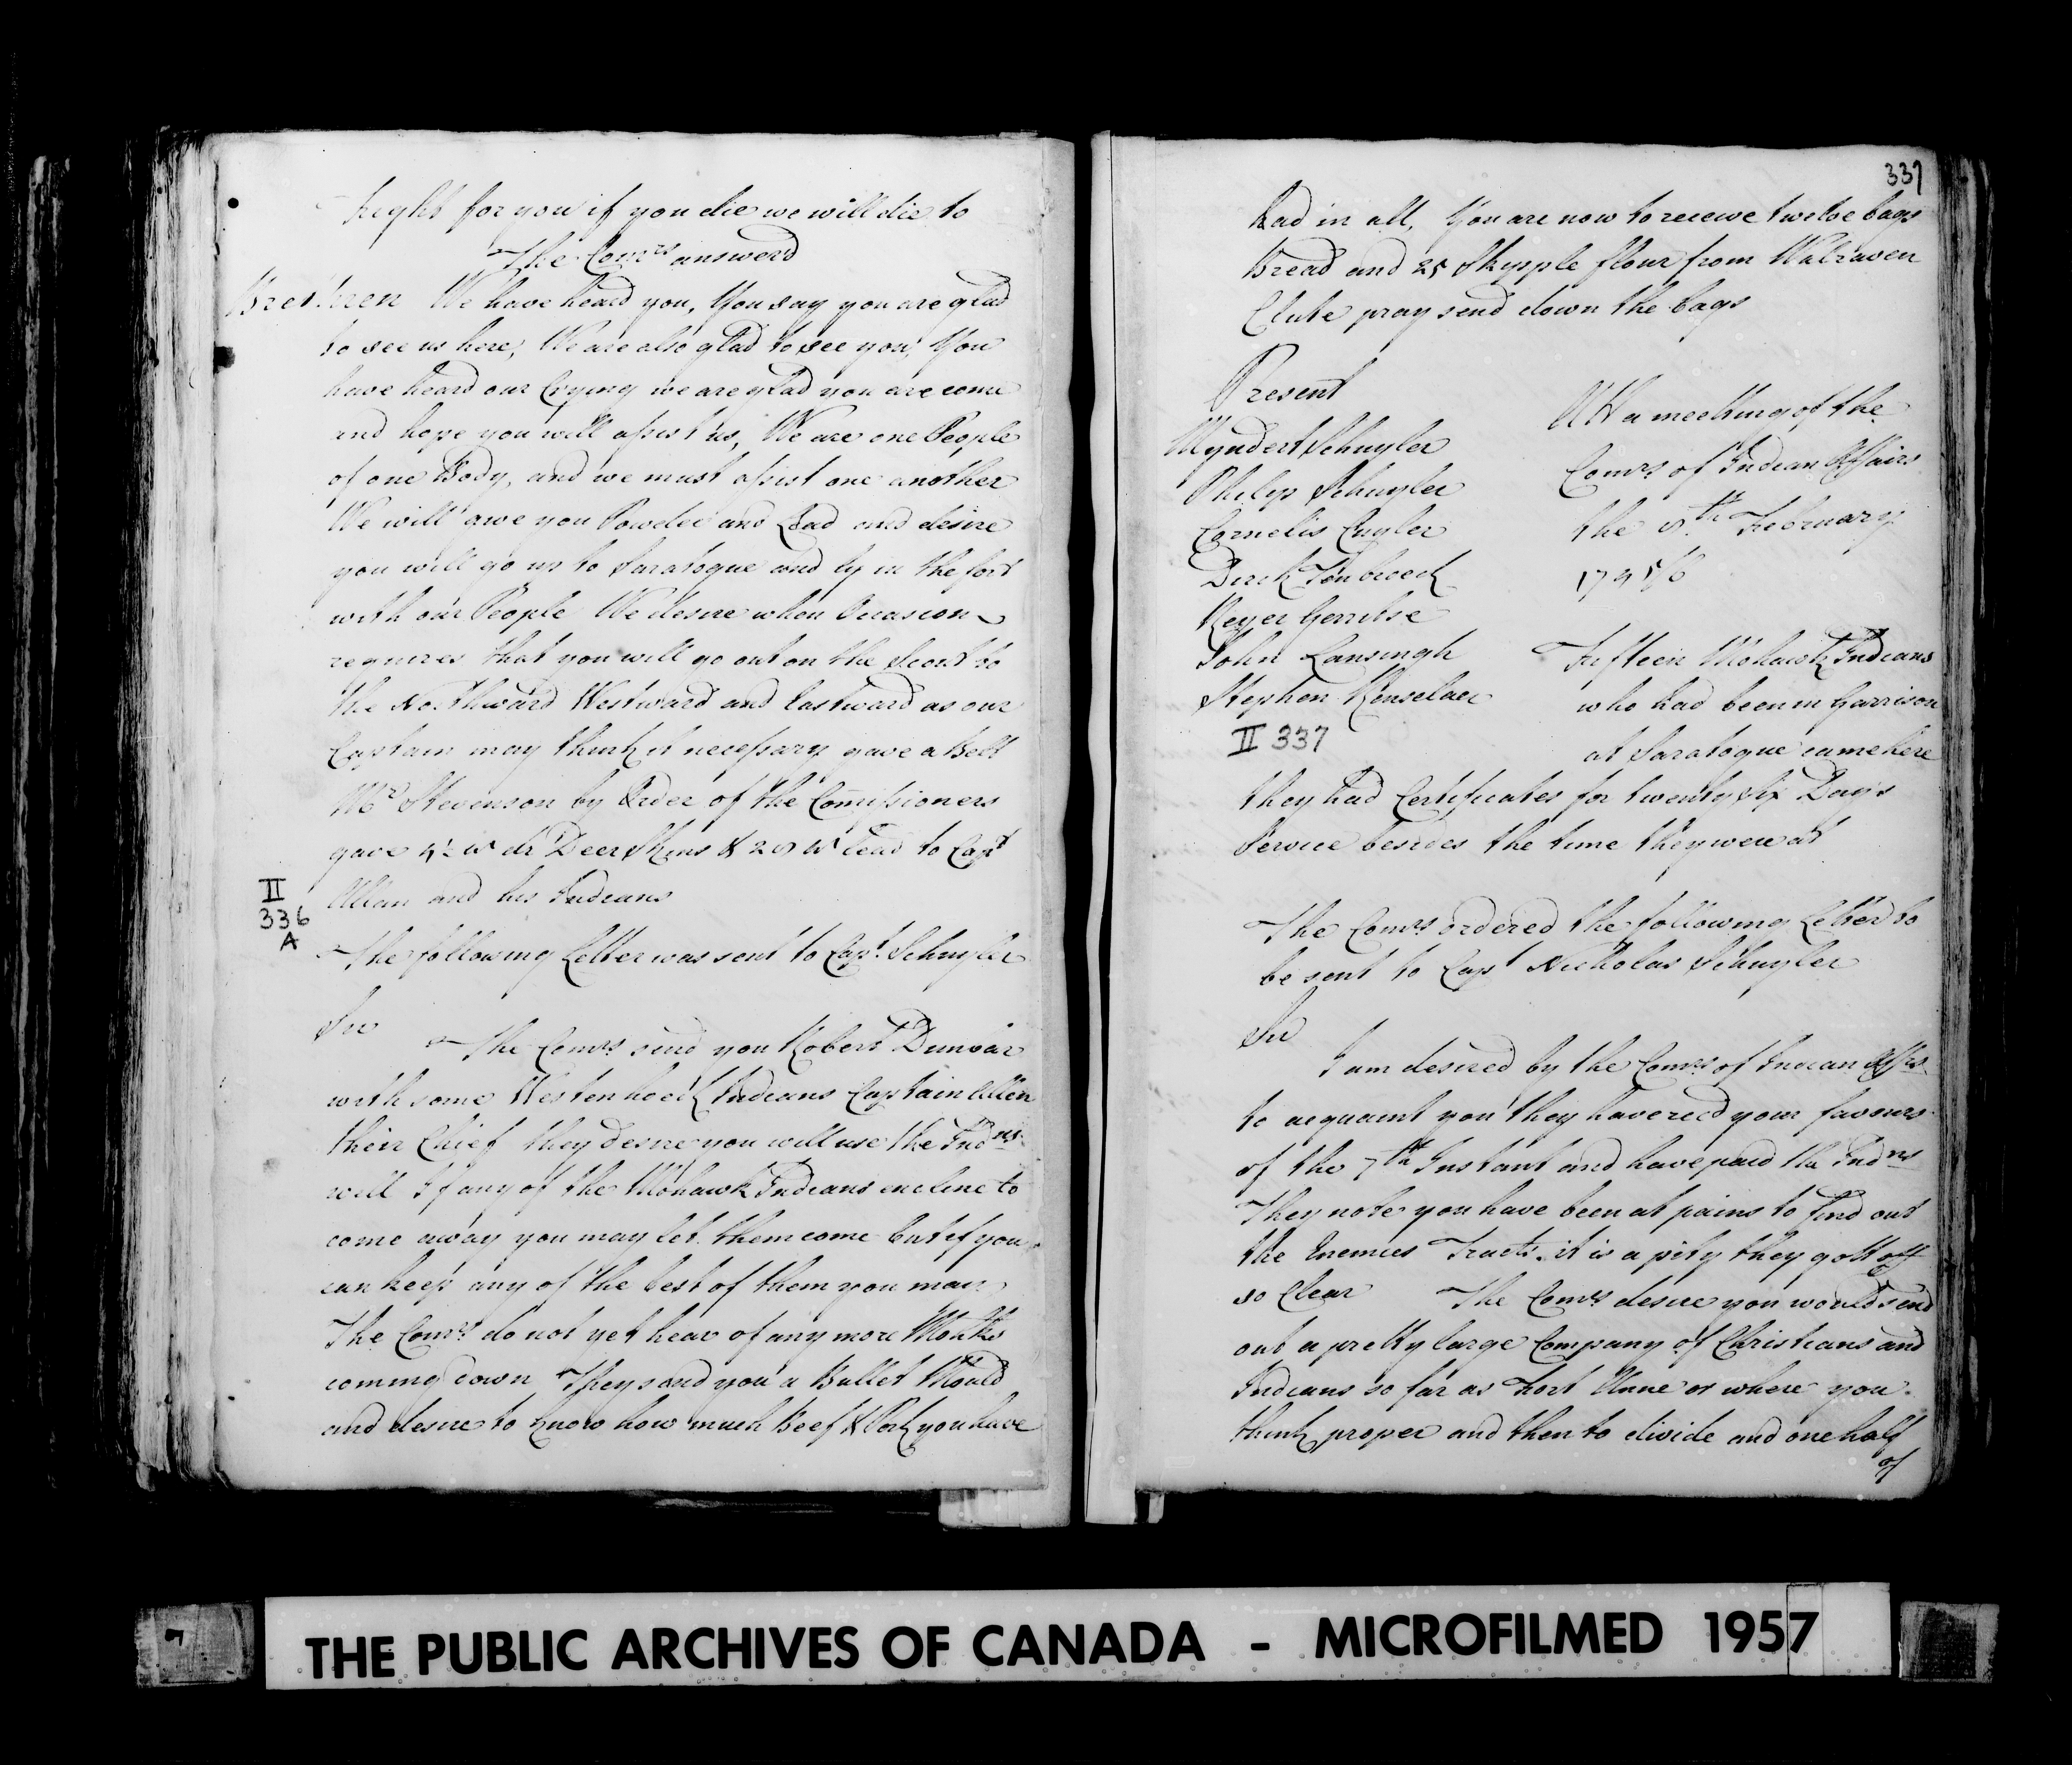 fught for you if you die we will die to
The Comrs answerd
Brethren We have heard you, You say you are glad
to see us here, We are also glad to see you, You
have heard our Crying we are glad you are come
and hope you will assist us, We are one People
of one Body, and we must assist one another
We will give you Powder and Lead and desire
you will go us to Saratogue and ly in the fort
with our People We desire when Occasion
requires that you will go out on the Scout to
the Northward Westward and Eastward as our
Captain may think it necessary gave a Belt
Mr Stevenson by Order of the Comissioners
gave 4½ w dr Deer Skins & 28 w Lead to Capt
Allan and his Indians
II
336
A
The following Letter was sent to Capt. Schuyler
Sir
The Comrs send you Robert Dunbar
with some Westenhoek Indians Captain Allen
their Chief they desire you will use the Indns
well If any of the Mohawk Indians encline to
come away you may let them come but if you
can keep any of the best of them you may
The Comrs do not yet hear of any more Mohks
coming down They send you a Bullet Mould
and desire to know how much Beef & Pork you have
337
had in all, You are now to receive twelve bags
Bread and 25 Skypple flour from Walraven
Clute pray send down the bags
Present
Myndert Schuyler
Philip Schuyler
Cornelis Cuyler
Dirck Tenbroeck
Reyer Gerritse
John Lansingh
Stephen Renselaer
II 337
Att a meeting of the
Comrs of Indian Affairs
the 8th February
1745/6
Fifteen Mohawk Indians
who had been in Garrison
at Saratogue came here
they had Certificates for twenty Six Days
Service besides the time they were at
The Comrs ordered the following Letter to
be sent to Capt Nicholas Schuyler
Sir
I am desired by the Comrs of Indian Affrs
to acquaint you they have recd your favours
of the 7th Instant and have paid the Indns
They note you have been at pains to find out
the Enemies Tracts. it is a pity they gott off
so Clear The Comrs desire you would send
out a pretty large Company of Christians and
Indians so far as Fort Anne or where you
think proper and then to divide and one half
of
THE PUBLIC ARCHIVES OF CANADA - MICROFILMED 1957